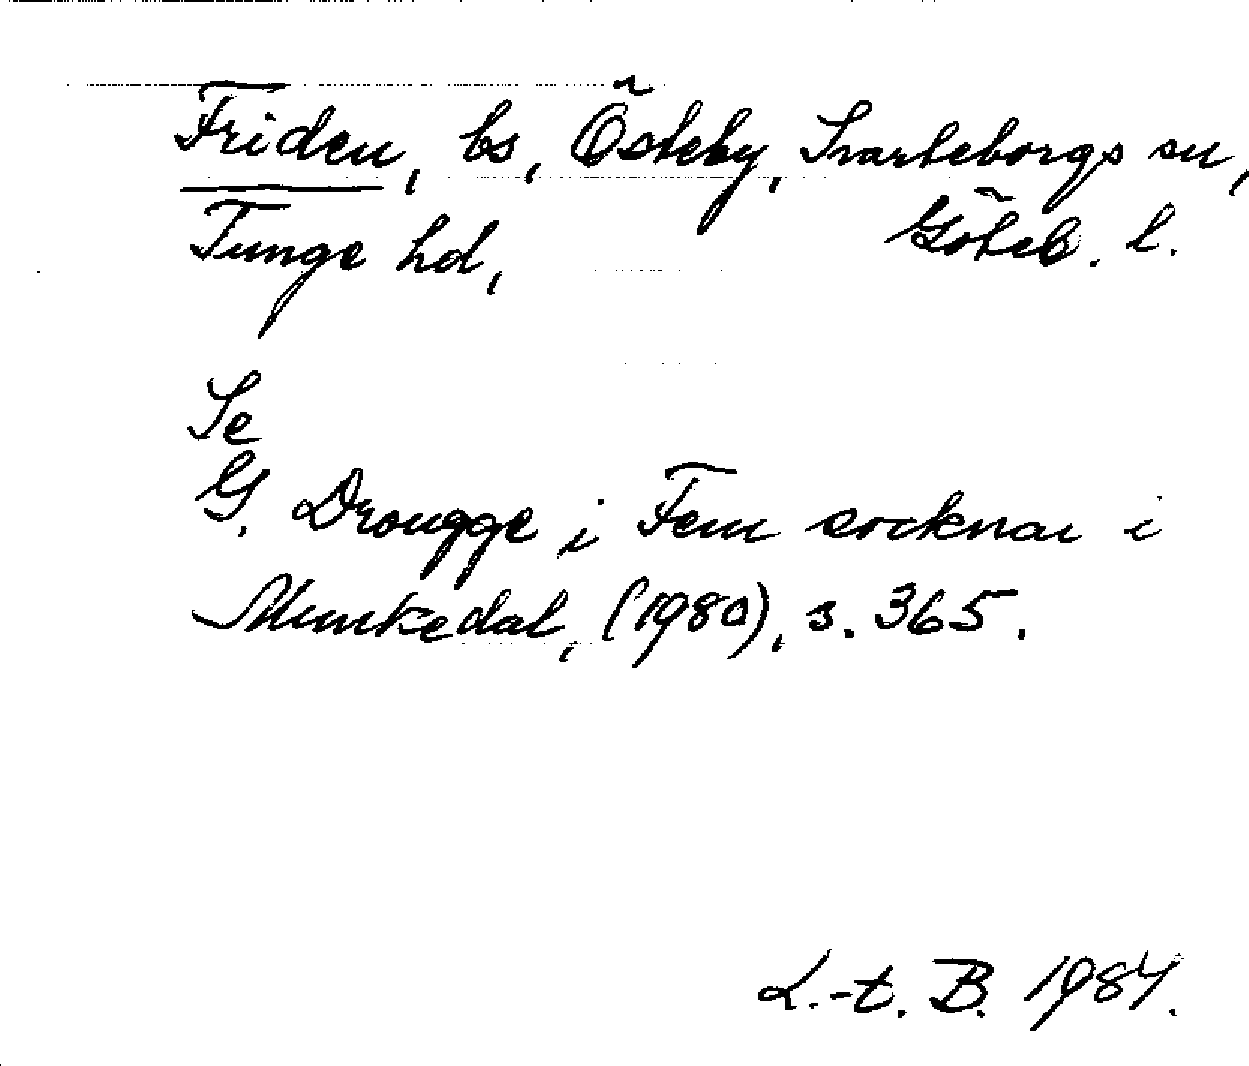 Friden, bs, Östeby, Svarteborgs sn,
Tunge hd, Göteb. l.
Se
G. Drougge i Fem socknar i
Munkedal, (1980), s. 365.
L.-t. B. 1984.